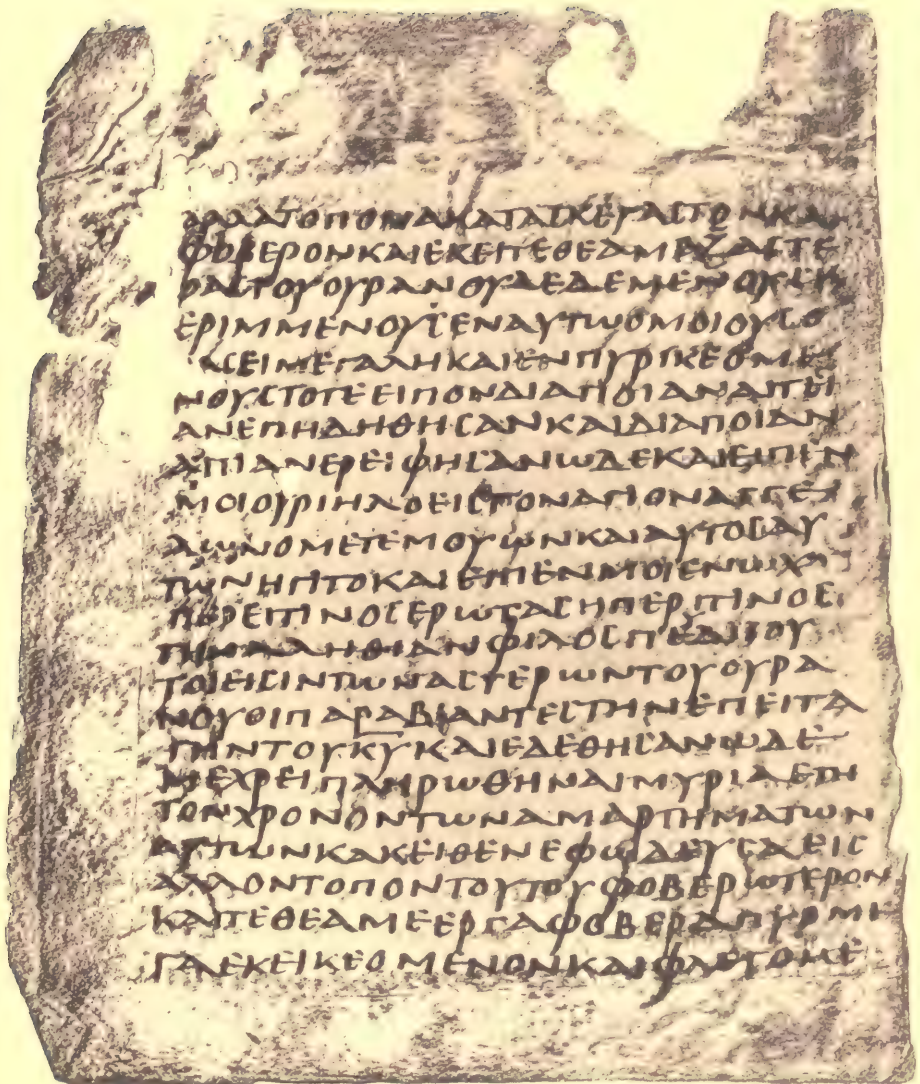 ΑΛΛΑΤΟΠΟΝΑΚΑΤΑϹΚΕΥΑϹΤΟΝΚΑΙ
ΦΟΒΕΡΟΝΚΑΙΕΚΕΙΤΕΘΕΑΜΕΖΑϹΤΕ
ΡΑϹΤΟΥΟΥΡΑΝΟΥΔΕΔΕΜΕΝΟΥϹΚΑΙ
ΕΡΙΜΜΕΝΟΥϹΕΝΑΥΤΩΟΜΟΙΟΥϹΟ
ΡΑϹΕΙΜΕΓΑΛΗΚΑΙΕΝΠΥΡΙΚΕΟΜΕ
ΝΟΥϹΤΟΤΕΕΙΠΟΝΔΙΑΠΟΙΑΝΑΙΤΕΙ
ΑΝΕΠΗΔΗΘΗϹΑΝΚΑΙΔΙΑΠΟΙΑΝ
ΑΙΤΙΑΝΕΡΕΙΦΗϹΑΝΩΔΕΚΑΙΕΙΠΕΝ
ΜΟΙΟΥΡΙΗΛΟΕΙϹΤΟΝΑΓΙΟΝΑΓΓΕ
ΛΩΝΟΜΕΤΕΜΟΥΩΝΚΑΙΑΥΤΟϹΑΥ
ΤΩΝΗΓΙΤΟΚΑΙΕΙΠΕΝΜΟΙΕΝΩΧ
ΠΕΡΕΙΤΙΝΟϹΕΡΩΤΑϹΗΠΕΡΙΤΙΝΟϹ
ΤΗΝΑΛΗΘΙΑΝΦΙΛΟϹΠΕΔΙϹΟΥ
ΤΟΙΕΙϹΙΝΤΩΝΑϹΤΕΡΩΝΤΟΥΟΥΡΑ
ΝΟΥΘΙΠΑΡΑΒΙΑΝΤΕϹΤΗΝΕΠΕΙΤΑ
ΓΗΝΤΟΥΚΥΚΑΙΕΔΕΘΗϹΑΝΩΔΕ
ΜΕΧΡΕΙΠΛΗΡΩΘΗΝΑΙΜΥΡΙΑΕΤΗ
ΤΟΝΧΡΟΝΟΝΤΩΝΑΜΑΡΤΗΜΑΤΩΝ
ΑΥΤΩΝΚΑΚΕΙΘΕΝΕΦΩΔΕΥϹΑΕΙϹ
ΑΛΛΟΝΤΟΠΟΝΤΟΥΤΟΥΦΟΒΕΡΩΤΕΡΟΝ
ΚΑΙΤΕΘΕΑΜΕΕΡΓΑΦΟΒΕΡΑΠΥΡΜΕ
ΓΑΕΚΕΙΚΕΟΜΕΝΟΝΚΑΙΦΛΕΓΟΜΕ